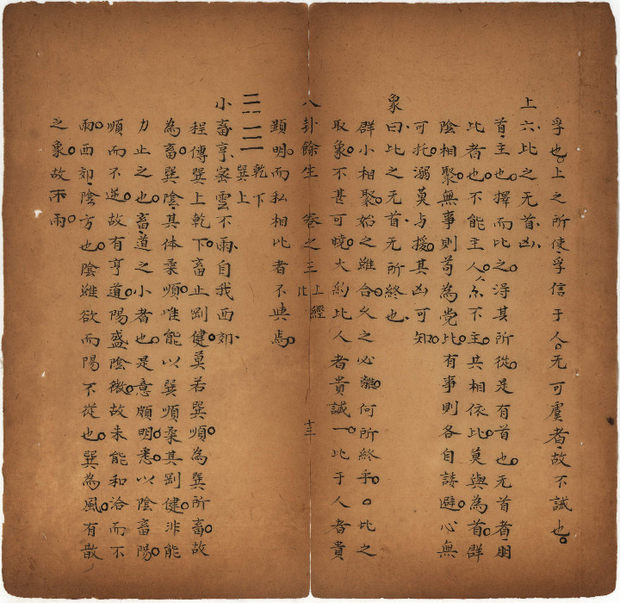 孚也上之所使孚信于人无可虞者故不誡也
上六比之无首凶
首主也擇而比之得其所從是有首也无首者朋
比者也不能主人人亦不主其相依比莫與為首群
陰相聚無事則茍為党比有事則各自諉避心無
可托溺莫与援其凶可知
象曰比之无首无所終也
群小相聚始之雖合久之必離何所終乎此之
取象不甚可曉大約比人者貴誠一比于人者貴
顯明而私相比者不與焉
八卦餘生 卷之三 上經 比 十三
乾下
巽上
小畜亨密雲不雨自我西郊
程傳巽上乾下畜止剛健莫若巽順為巽所畜故
為畜巽陰其体柔順唯能以巽順柔其剛健非能
力止之也畜道之小者也是意頗明悉以陰畜陽
順而不逆故有亨道陽盛陰微故未能和洽而不
雨西郊陰方也陰雖欲而陽不從也巽為風有散
之象故不雨